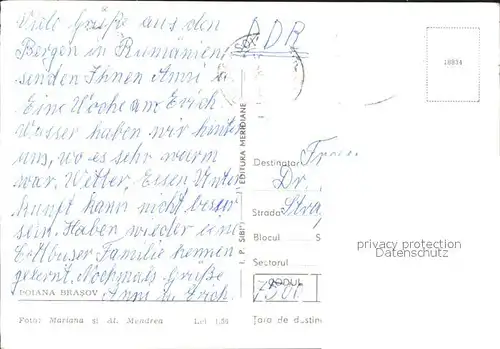 Viele Grüße aus den
Bergen in Rumänien
senden Ihnen Anni u.
Erich
Eine Woche am
Wasser haben wir hinter
uns, wo es sehr warm
war. Wetter, Essen, Unter
kunft kann nicht besser
sein. Haben wieder eine
Cottbuser Familie kennen
gelernt. Nochmals Grüße
Anni u. Erich
POIANA BRAȘOV
Foto: Mariana și Al. Mendrea
Lei 1,50
I. P. SIBIU
EDITURA MERIDIANE
DDR
16834
Destinatar
Frau
Dr.
Strada
Blocul
S
Sectorul
CODUL
7501
Țara de destin
privacy protection
Datenschutz